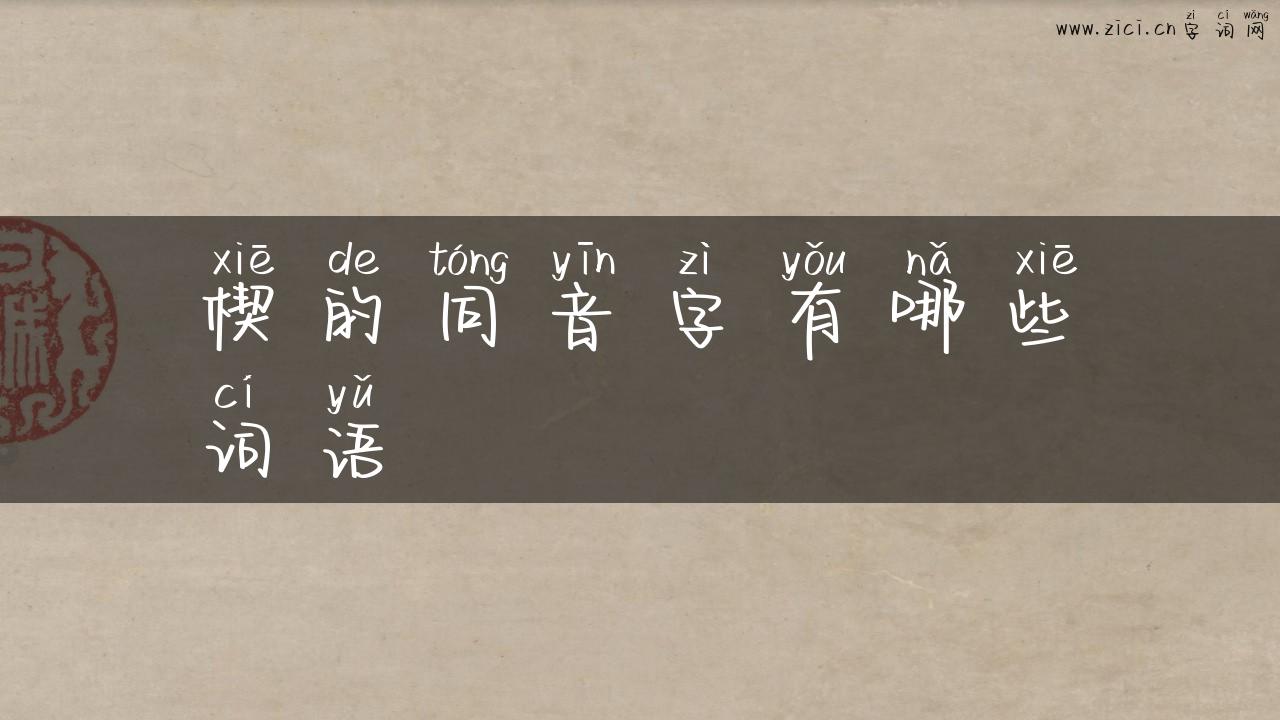 www.zici.cn 字词网
zì cí wǎng
xiē de tóng yīn zì yǒu nǎ xiē
楔的同音字有哪些
cí yǔ
词语